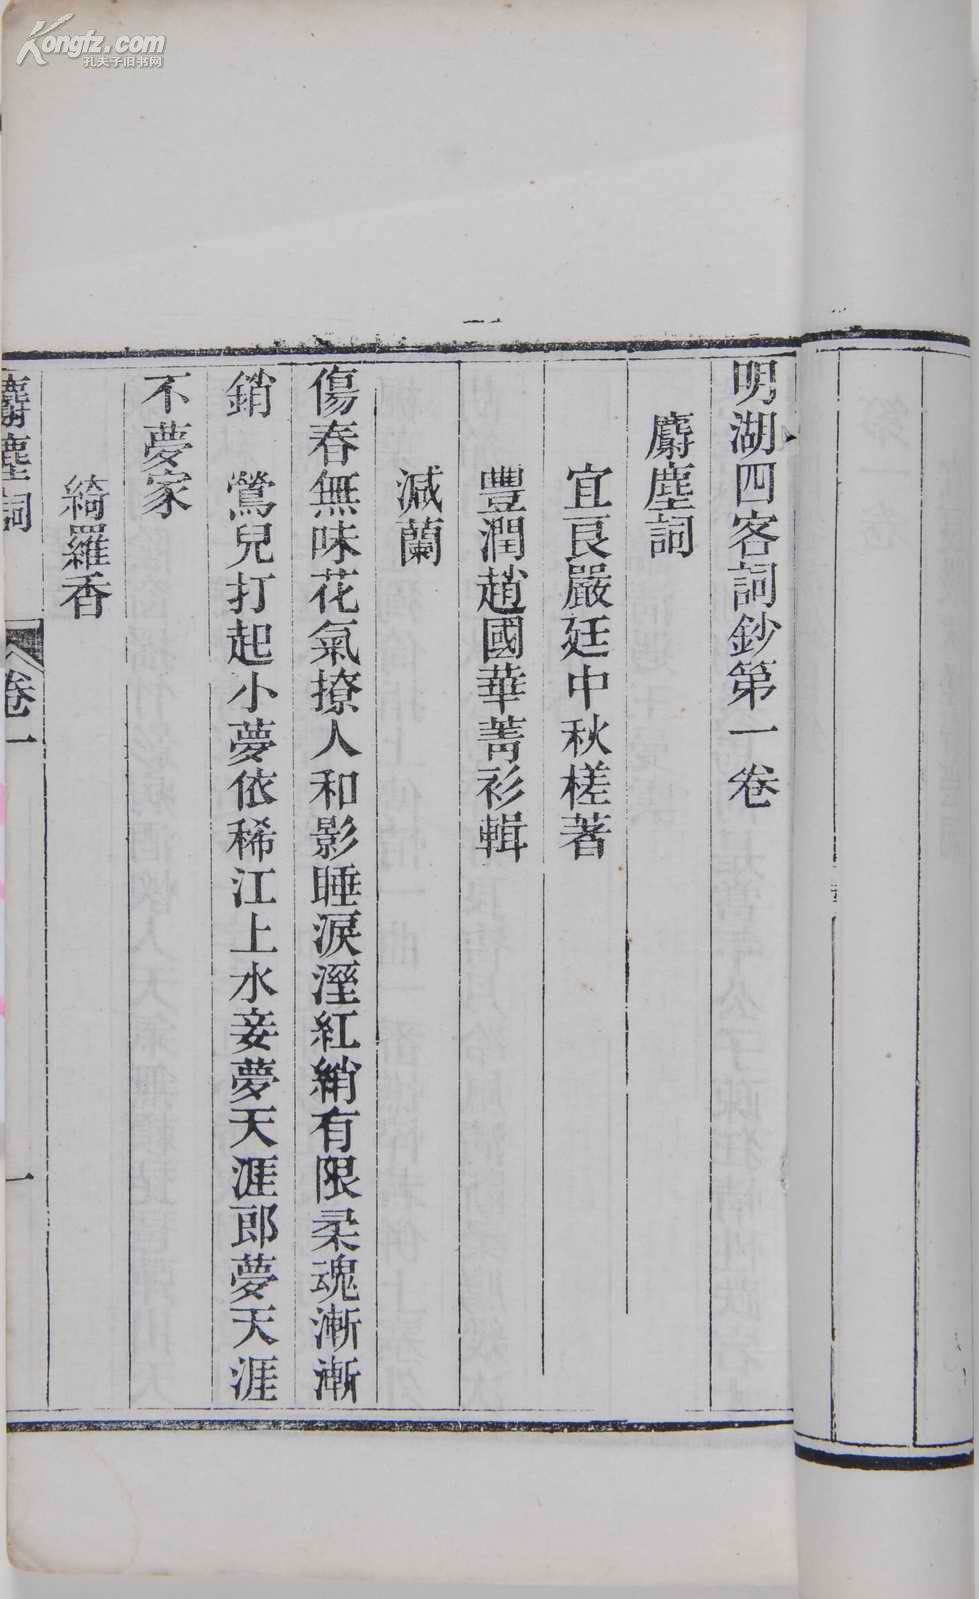 明湖四客詞鈔第一卷
麝塵詞
宜良嚴廷中秋槎著
豐潤趙國華菁衫輯
減蘭
傷春無味花氣撩人和影睡淚溼紅綃有限柔魂漸漸
銷　鶯兒打起小夢依稀江上水妾夢天涯郎夢天涯
不夢家
綺羅香
麝塵詞
卷一
一
Kongfz.com
孔夫子旧书网